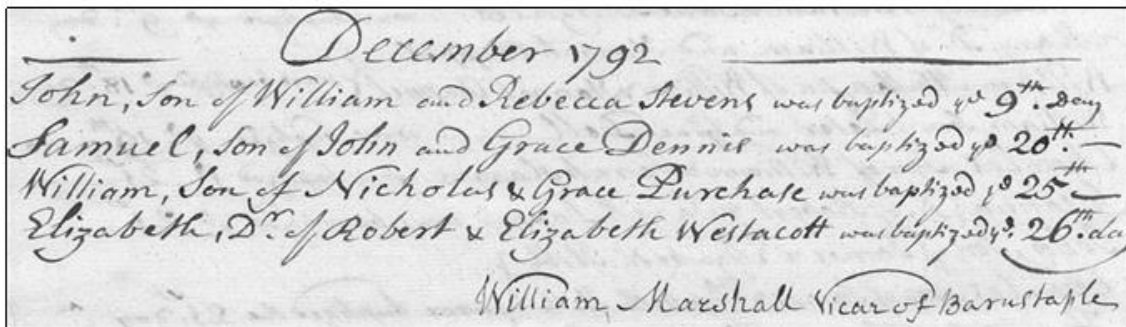 December 1792
John, Son of William and Rebecca Stevens was baptized ye 9th. Day
Samuel, Son of John and Grace Dennis was baptized ye 20th.
William, Son of Nicholas & Grace Purchase was baptized ye 25th
Elizabeth, Dr. of Robert & Elizabeth Westacott was baptized ye. 26th. da
William Marshall Vicar of Barnstaple